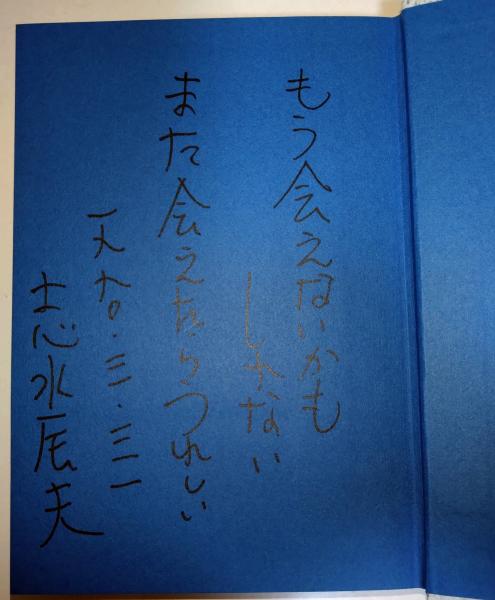 もう会えないかも
しれない
また会えたらうれしい
一九九〇・三・三一
志水辰夫